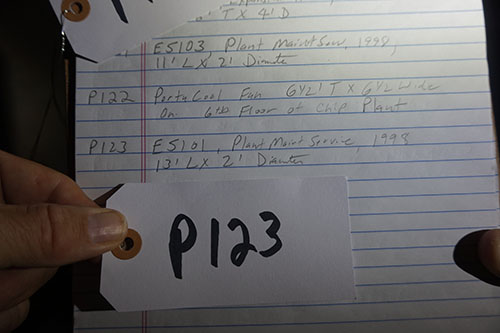 T X 4' D
E5103, Plant Maint Serv, 1998,
11' L X 2' Diameter
P122 PortaCool Fan 6 1/2' T X 6 1/2 Wide
on 6th Floor of Chip Plant
P123 E5101, Plant Maint Service, 1998
13' L X 2' Diameter
P123